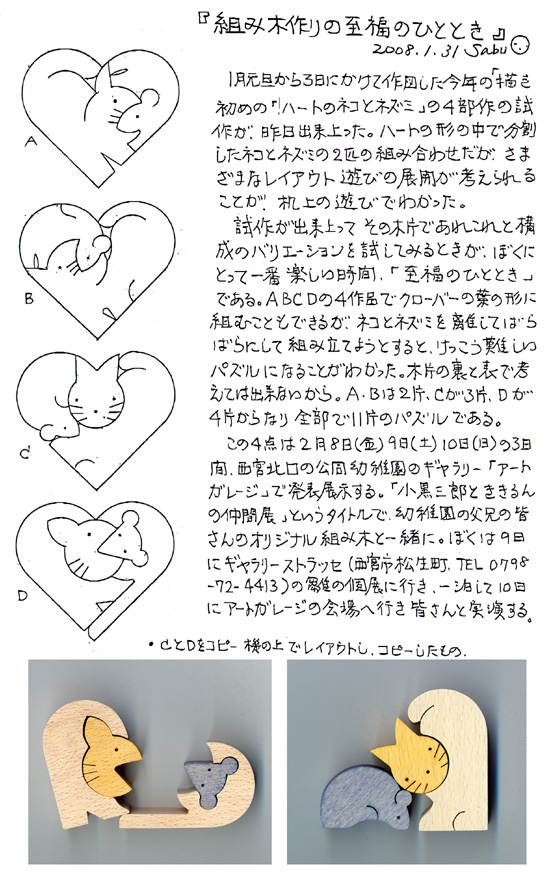 『組み木作りの至福のひととき』
2008.1.31 Sabu
1月元旦から3日にかけて作図した今年の「描き
初めの「ハートのネコとネズミ」の4部作の試
作が、昨日出来上った。ハートの形の中で分割
したネコとネズミの2匹の組み合わせだが、さま
ざまなレイアウト遊びの展開が考えられる
ことが、机上の遊びでわかった。
試作が出来上って その木片であれこれと構
成のバリエーションを試してみるときが、ぼくに
とって一番楽しい時間、「至福のひととき」
である。ABCDの4作品でクローバーの葉の形に
組むこともできるが、ネコとネズミを離してばら
ばらにして組み立てようとすると、けっこう難しい
パズルになることがわかった。木片の裏と表で考
えては出来ないから。A・Bは2片、Cが3片、Dが
4片からなり 全部で11片のパズルである。
この4点は2月8日(金)9日(土)10日(日)の3日
間、西宮北口の公同幼稚園のギャラリー「アート
ガレージ」で発表展示する。「小黒三郎とききるん
の仲間展」というタイトルで、幼稚園の父兄の皆
さんのオリジナル組み木と一緒に。ぼくは9日
にギャラリーストラッセ(西宮市松生町、TEL 0798
-72-4413)の雛の個展に行き、一泊して10日
にアートガレージの会場へ行き皆さんと実演する。
A
B
C
D
・CとDをコピー機の上でレイアウトし、コピーしたもの.